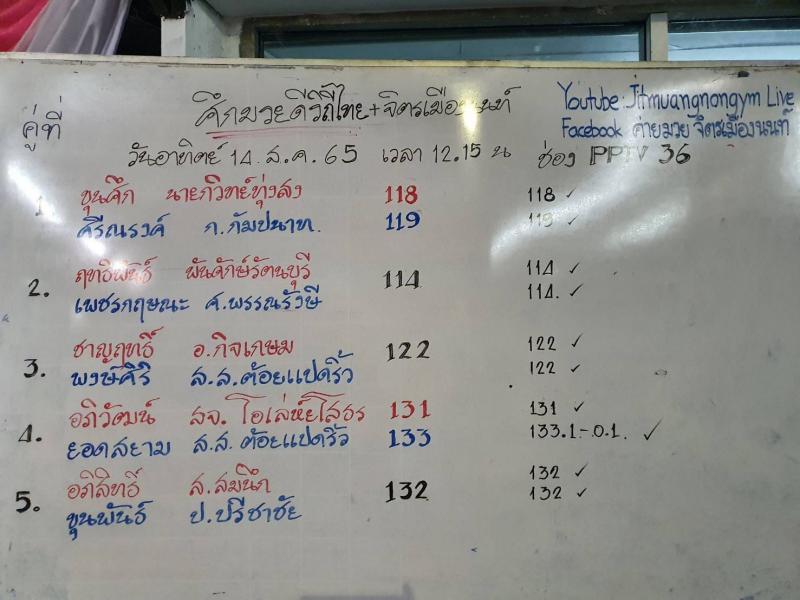 ศึกมวยดีวิถีไทย+จิตรเมืองนนท์
Youtube Jitmuangnongym Live
Facebook ค่ายมวย จิตรเมืองนนท์
คู่ที่
วันอาทิตย์ 14 ส.ค. 65 เวลา 12.15 น ช่อง PPTV 36
1. ขุนศึก นายกวิทย์ทุ่งสง 118 118 ✓
ศรีณรงค์ ก.กัมปนาท. 119 119 ✓
2. ฤทธิพันธ์ พันจักษ์รัตนบุรี 114 114 ✓
เพชรกฤษณะ ศ.พรรณรังษี 114. ✓
3. ชาญฤทธิ์ อ.กิจเกษม 122 122 ✓
พงษ์ศิริ ส.ส.ต้อยแปดริ้ว 122 ✓
4. อภิวัฒน์ สจ.โอเล่ห์ยโสธร 131 131 ✓
ยอดสยาม ส.ส.ต้อยแปดริ้ว 133 133.1-0.1. ✓
5. อภิสิทธิ์ ส.สมนึก 132 132 ✓
ขุนพันธ์ ป.ปรีชาชัย 132 ✓